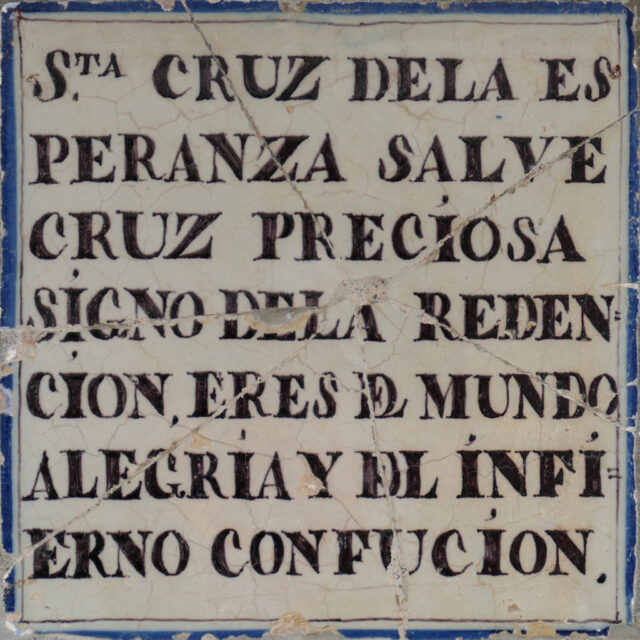 S.TA CRUZ DELA ES
PERANZA SALVE
CRUZ PRECIOSA
SIGNO DELA REDEN=
CION, ERES DEL MUNDO
ALEGRIA Y DL INFI=
ERNO CONFUCION.